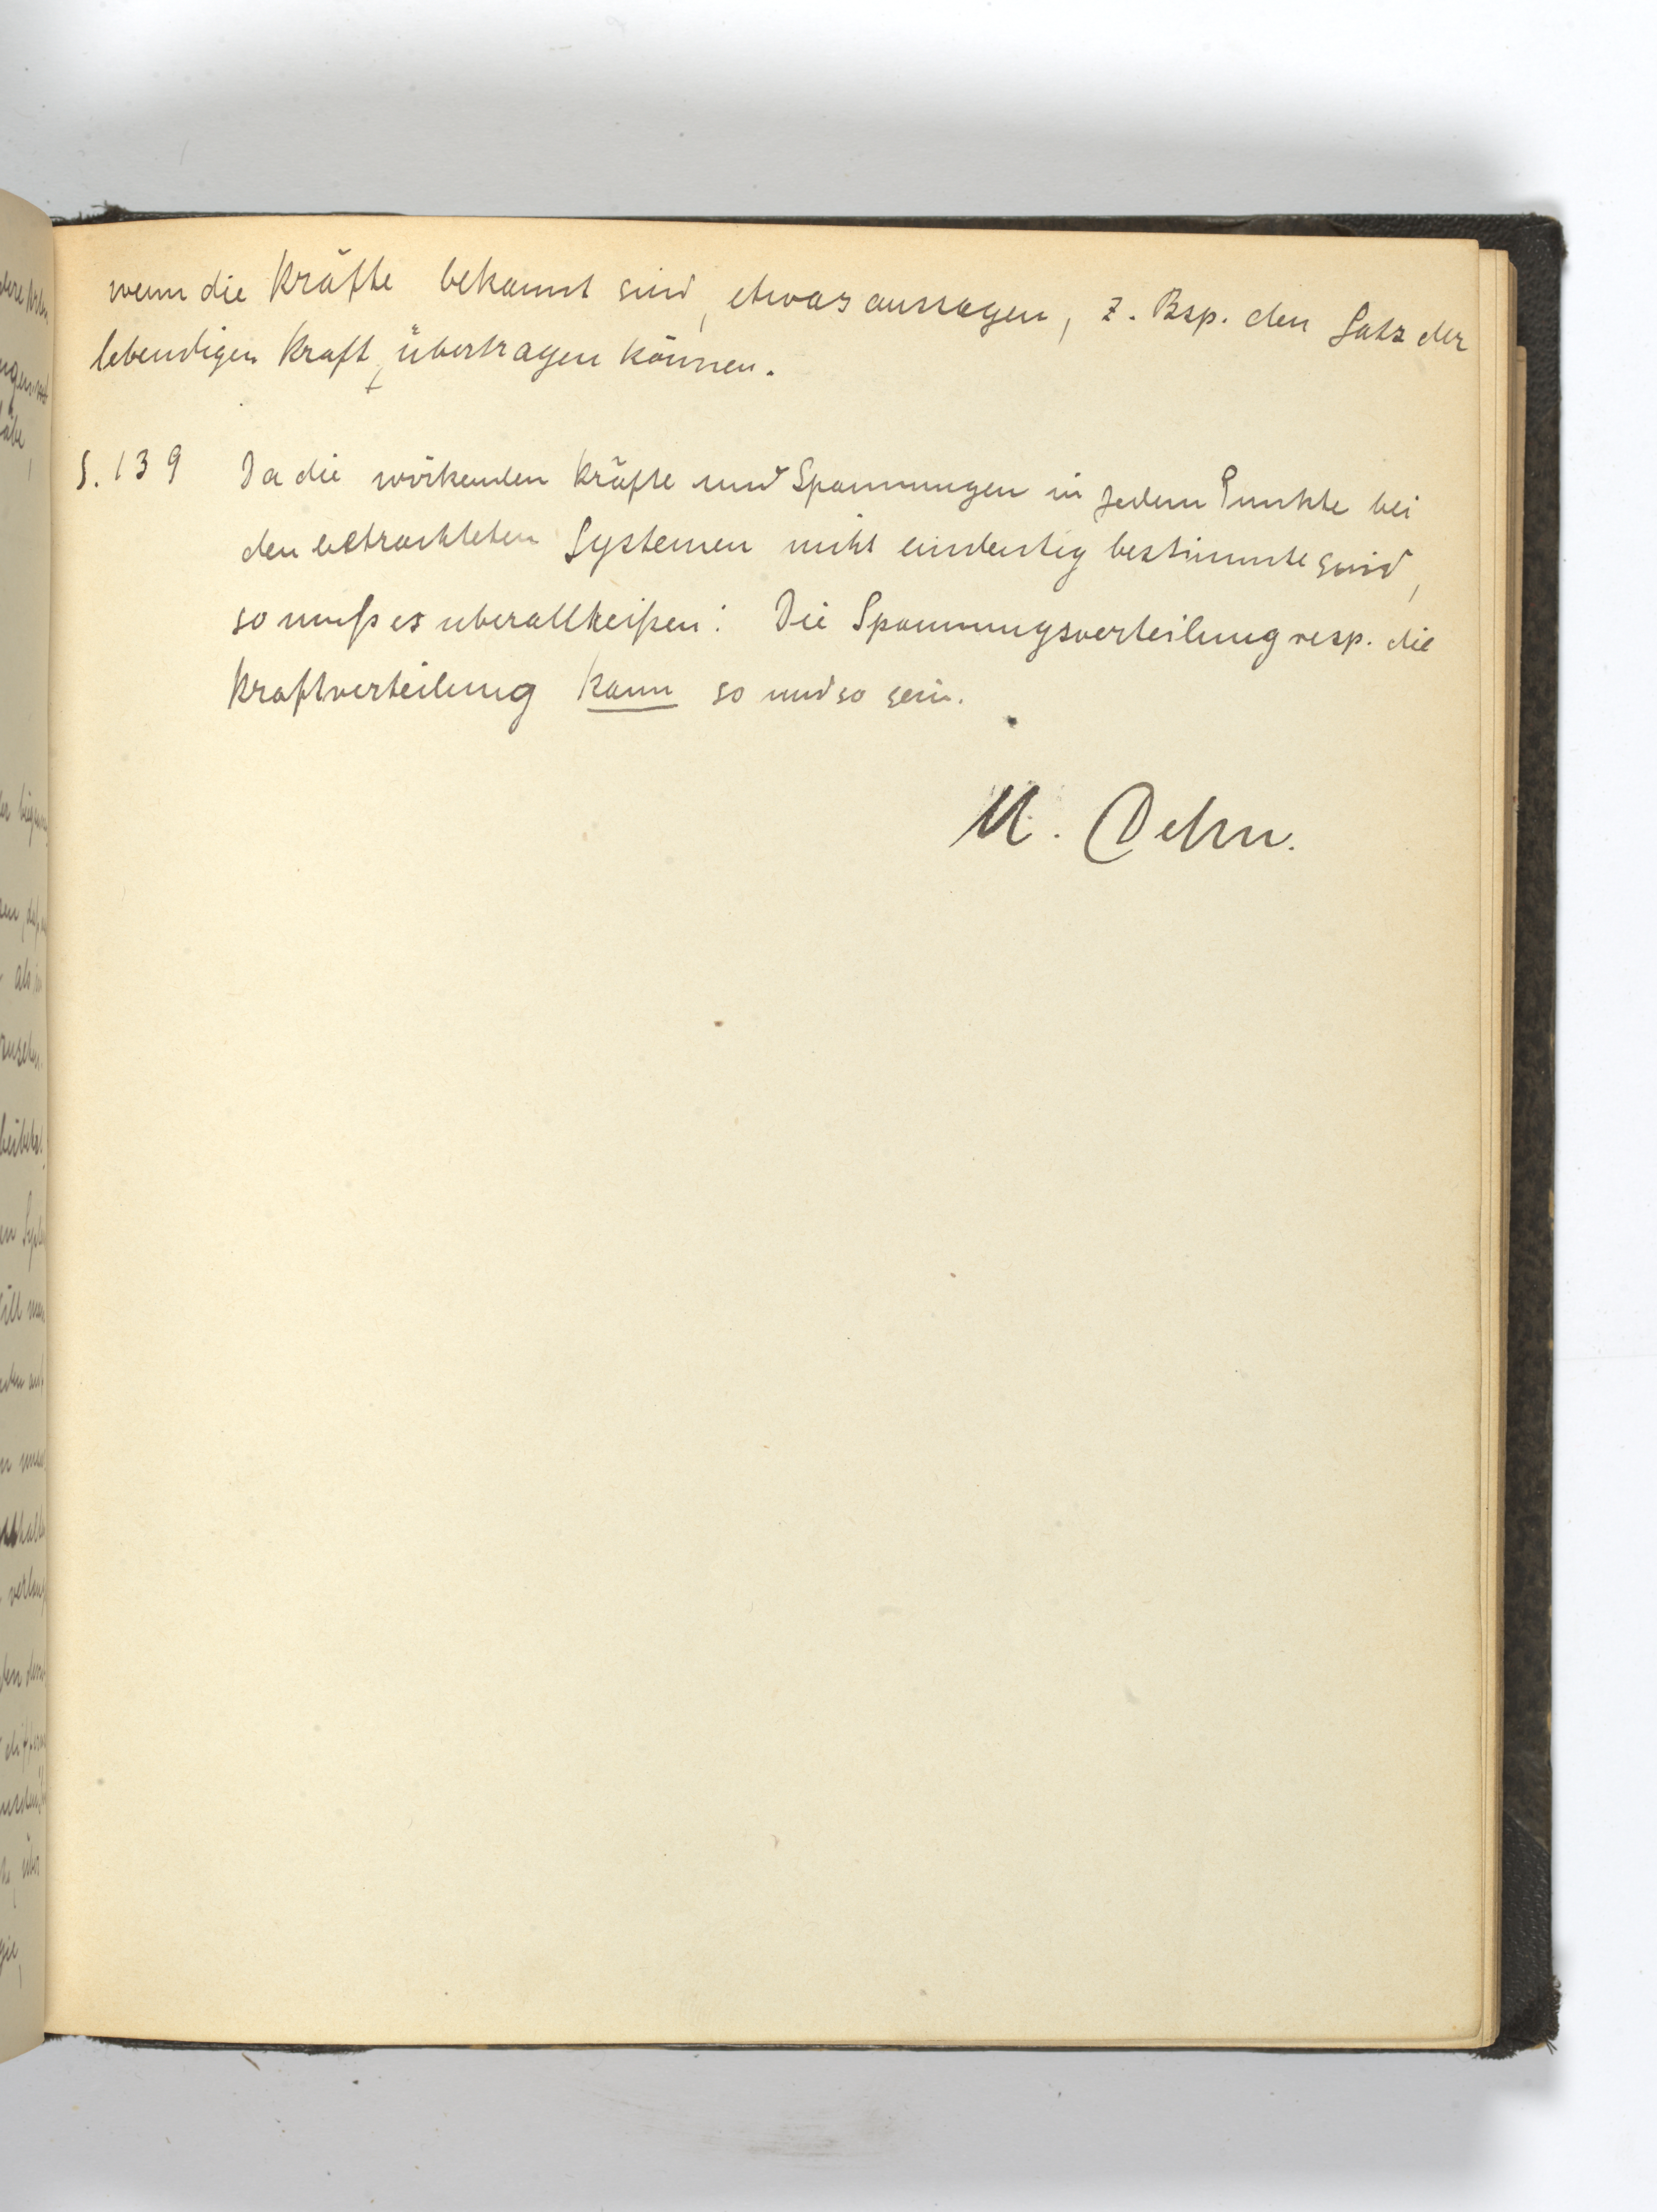 wenn die Kräfte bekannt sind, etwas aussagen, z. Bsp. den Satz der
lebendigen Kraft, übertragen können.
S. 139 Da die wirkenden Kräfte und Spannungen in jedem Punkte bei
den betrachteten Systemen nicht eindeutig bestimmte sind,
so muß es überall heißen: Die Spannungsverteilung resp. die
Kraftverteilung kann so und so sein.
M. Dehn.